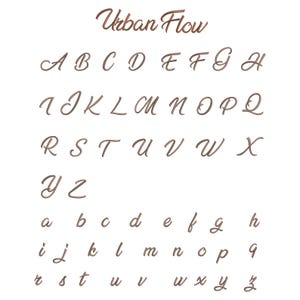 Urban Flow
A B C D E F G H
I J K L M N O P Q
R S T U V W X
Y Z
a b c d e f g h
i j k l m n o p q
r s t u v w x y z